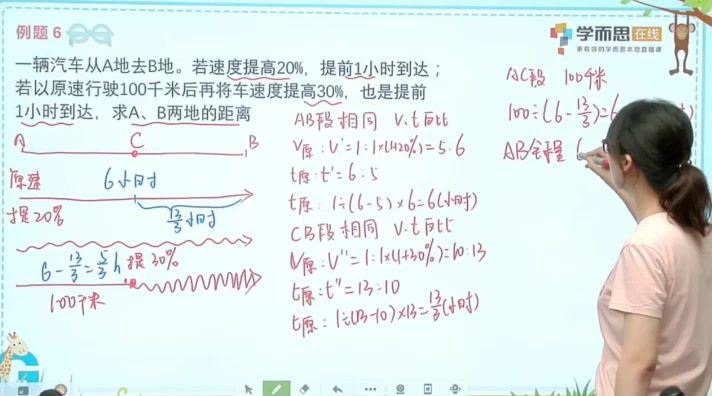 例题 6
学而思 在线
更有效的学而思本地直播课
一辆汽车从A地去B地。若速度提高20%，提前1小时到达；
若以原速行驶100千米后再将车速度提高30%，也是提前
1小时到达，求A、B两地的距离
A C B
原速 6小时
提20% 13/3小时
6-13/3=5/3 h 提30%
100千米
AB段相同 V.t反比
V原:V'=1:1×(1+20%)=5:6
t原:t'=6:5
t原:1÷(6-5)×6=6(小时)
CB段相同 V.t反比
V原:V''=1:1×(1+30%)=10:13
t原:t''=13:10
t原:1÷(13-10)×13=13/3(小时)
AC段 100千米
100÷(6-13/3)=6
AB全程 6